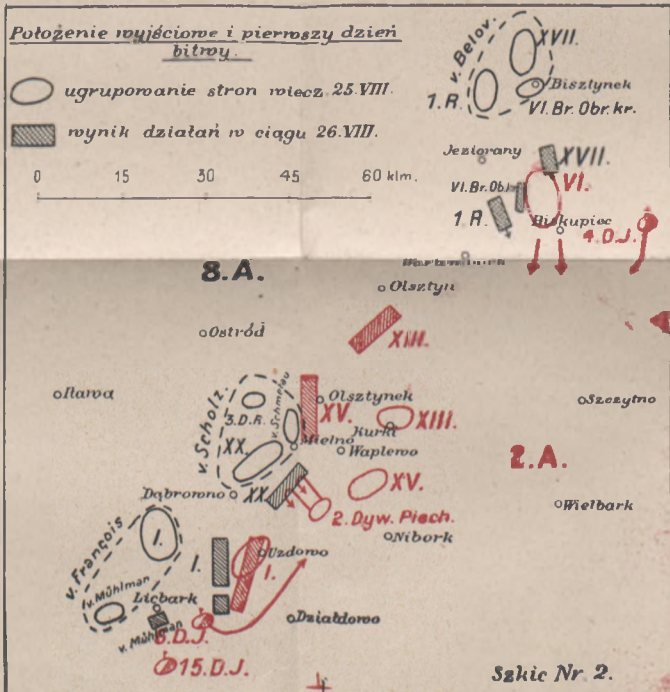 Położenie wyjściowe i pierwszy dzień
bitwy.
ugrupowanie stron wiecz. 25.VIII.
wynik działań w ciągu 26.VIII.
0 15 30 45 60 klm.
v. Below.
XVII.
1.R.
Bisztynek
VI.Br.Obr.kr.
Jeziorany
XVII.
VI.Br.Obr.
VI.
1.R.
Biskupiec
4.D.J.
8.A.
Olsztyn
Ostród
XIII.
Iława
v. Scholz.
v. Schmetau
3.D.R.
XX.
Olsztynek
XV.
XIII.
Kurki
Mielno
Waplewo
Szczytno
2.A.
Dąbrowno
XX.
XV.
2. Dyw. Piech.
Wielbark
Nibork
v. François
I.
I.
Uzdowo
I.
v. Mühlman
Licbark
v. Mühlman
6.D.J.
Działdowo
15.D.J.
Szkic Nr. 2.